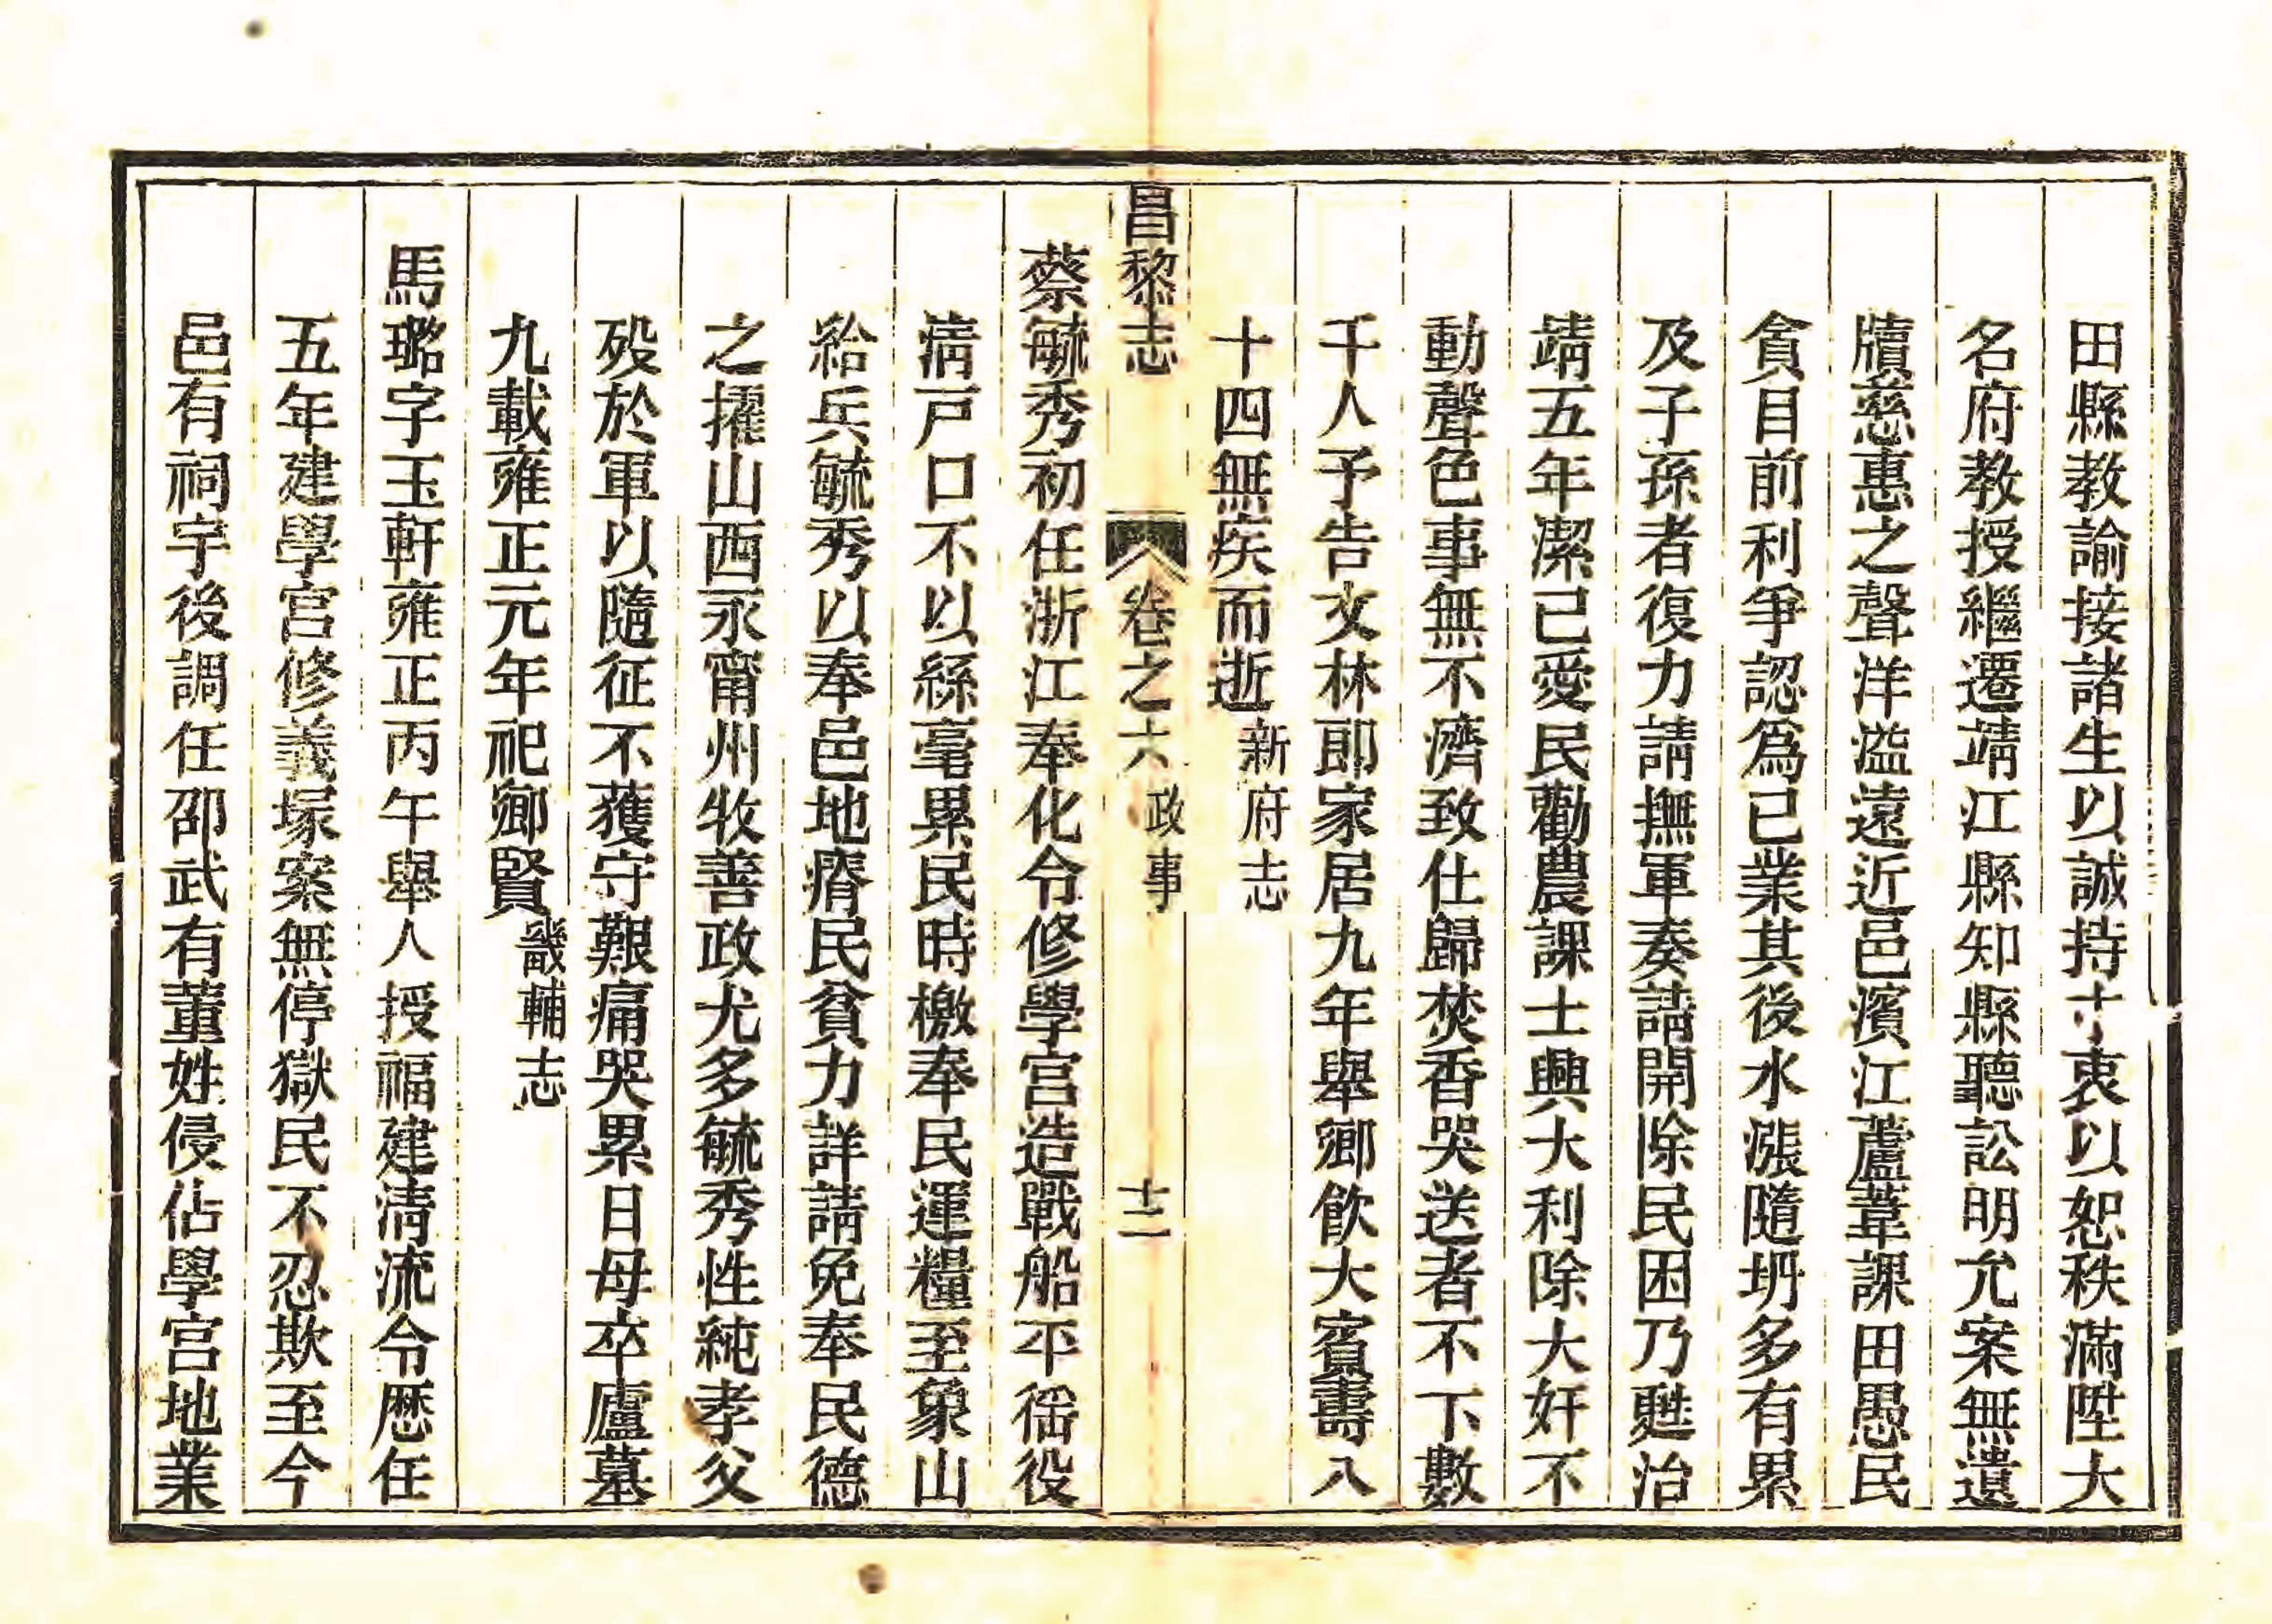 田縣教諭接諸生以誠持寸衷以恕秩滿陞大
名府教授繼遷靖江縣知縣聽訟明允案無遺
牘慈惠之聲洋溢遠近邑濱江蘆葦課田愚民
貪目前利爭認爲已業其後水漲隨坍多有累
及子孫者復力請撫軍奏請開除民困乃甦治
靖五年潔己愛民勸農課士興大利除大奸不
動聲色事無不濟致仕歸焚香哭送者不下數
千人予告文林郎家居九年舉鄉飲大賓壽八
十四無疾而逝新府志
昌黎志 卷之六 政事 十二
蔡毓秀初任浙江奉化令修學宮造戰船平徭役
清戸口不以絲毫累民時檄奉民運糧至象山
給兵毓秀以奉邑地瘠民貧力詳請免奉民德
之擢山西永甯州牧善政尤多毓秀性純孝父
歿於軍以隨征不獲守艱痛哭累日母卒廬墓
九載雍正元年祀鄉賢畿輔志
馬璐字玉軒雍正丙午舉人授福建清流令歴任
五年建學宮修義塚案無停獄民不忍欺至今
邑有祠宇後調任邵武有董姓侵佔學宮地業